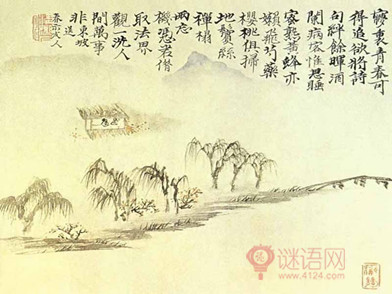 夢裏青春可
得追欲將詩
句絆餘暉酒
闌病客惟思睡
蜜熟黃蜂亦
懶飛芍藥
櫻桃俱掃
地鬢絲
禪榻
兩忘
機憑君借
取法界
觀一洗人
間萬事
非東坡送
春
谜语网
www.4124.com